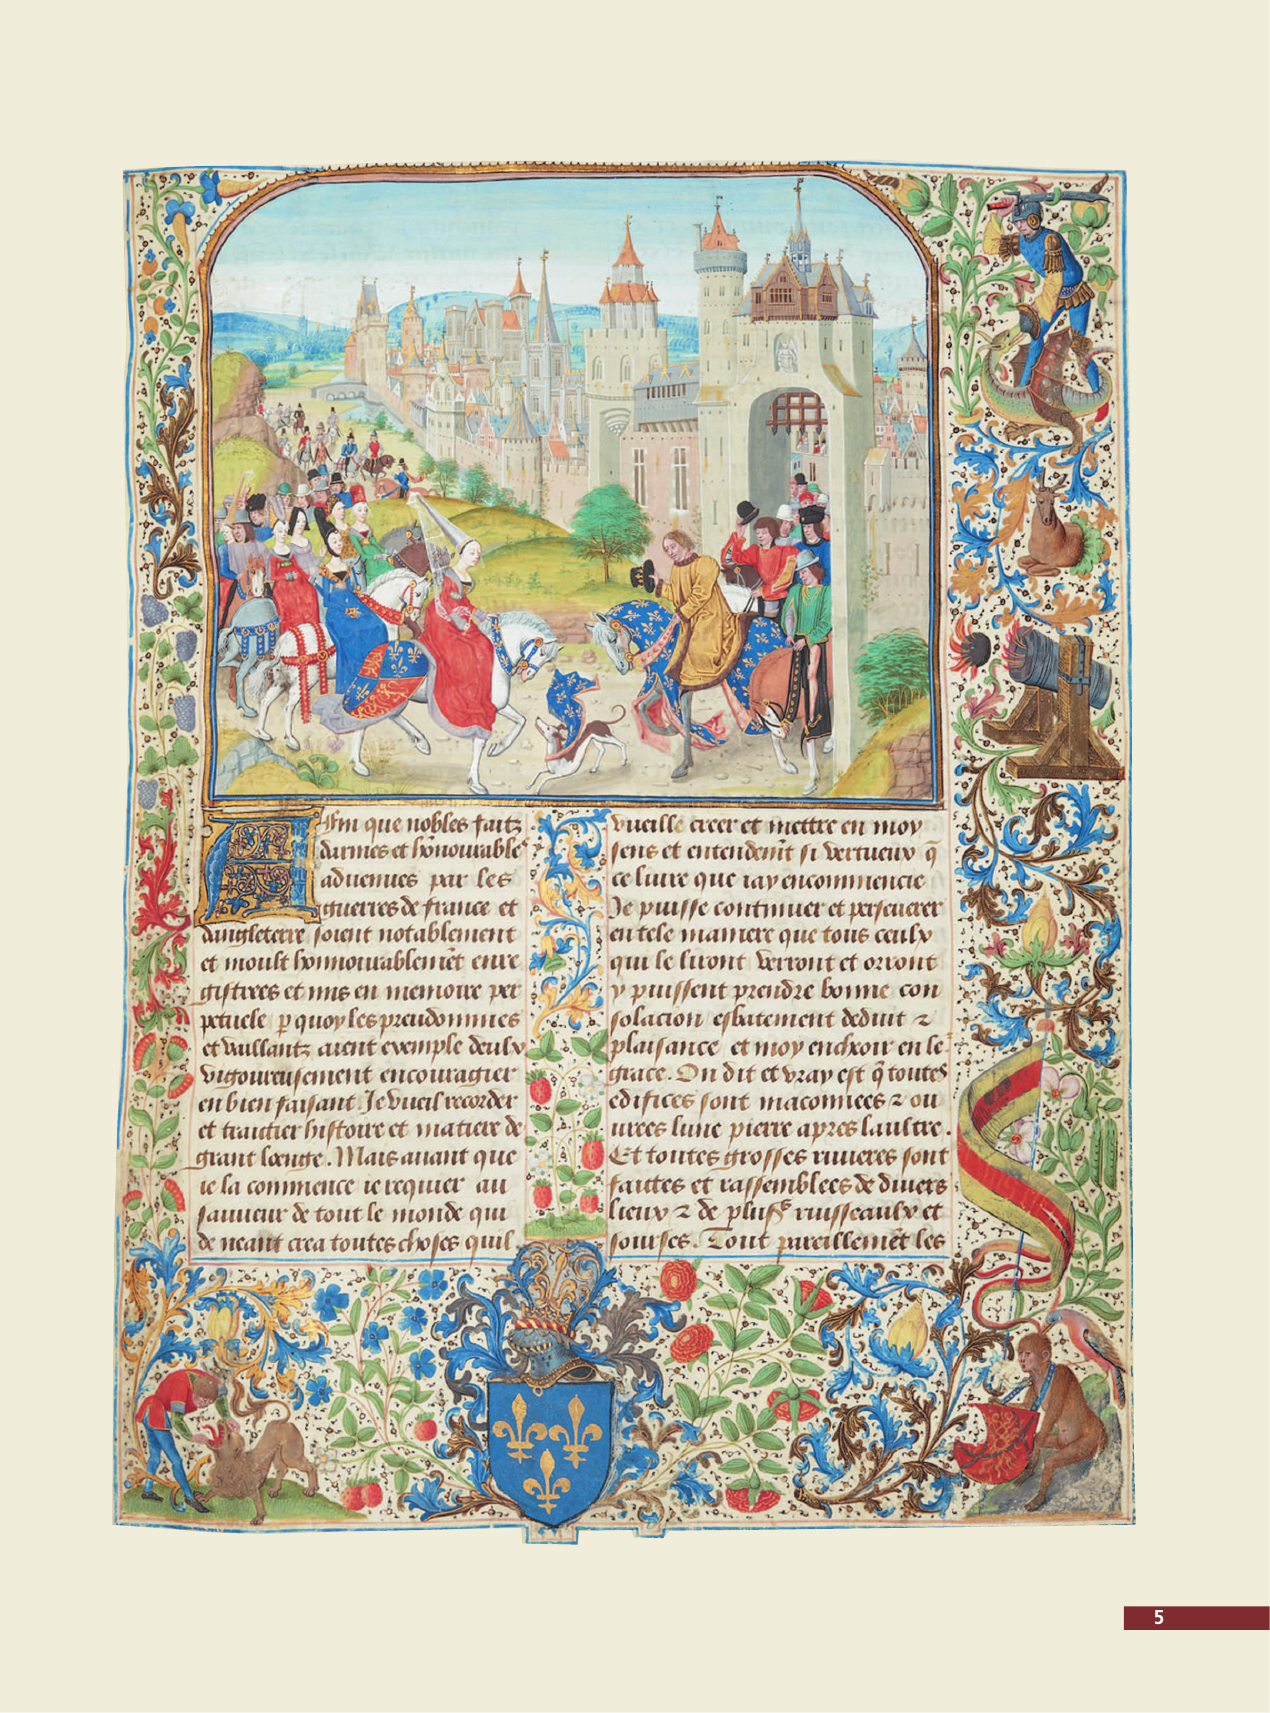 Afin que nobles faitz
darmes et honnourables
aduenues par les
guerres de france et
dangleterre soient notablement
et moult honnourablemēt enre
gistrees et mis en memoire per
petuele p quoy les preudommes
et vaillantz aient exemple deulx
vigoureusement encouragier
en bien faisant. Je vueil recorder
et traittier histoire et matiere de
grant loenge. Mais auant que
ie la commence ie requier au
sauueur de tout le monde qui
de neant crea toutes choses quil
vueille creer et mettre en moy
sens et entendemt si vertueux q̄
ce liure que iay encommencie
Je puisse continuer et perseuerer
en tele maniere que tous ceulx
qui le liront verront et orront
y puissent prendre bonne con
solacion esbatement deduit ⁊
plaisance et moy encheoir en le
grace. On dit et vray est q̄ toutes
edifices sont maconnees ⁊ ou
urees lune pierre apres laultre.
Et toutes grosses riuieres sont
faittes et rassemblees de diuers
lieux ⁊ de plus ruisseaulx et
sourses. Tout pareillemēt les
5